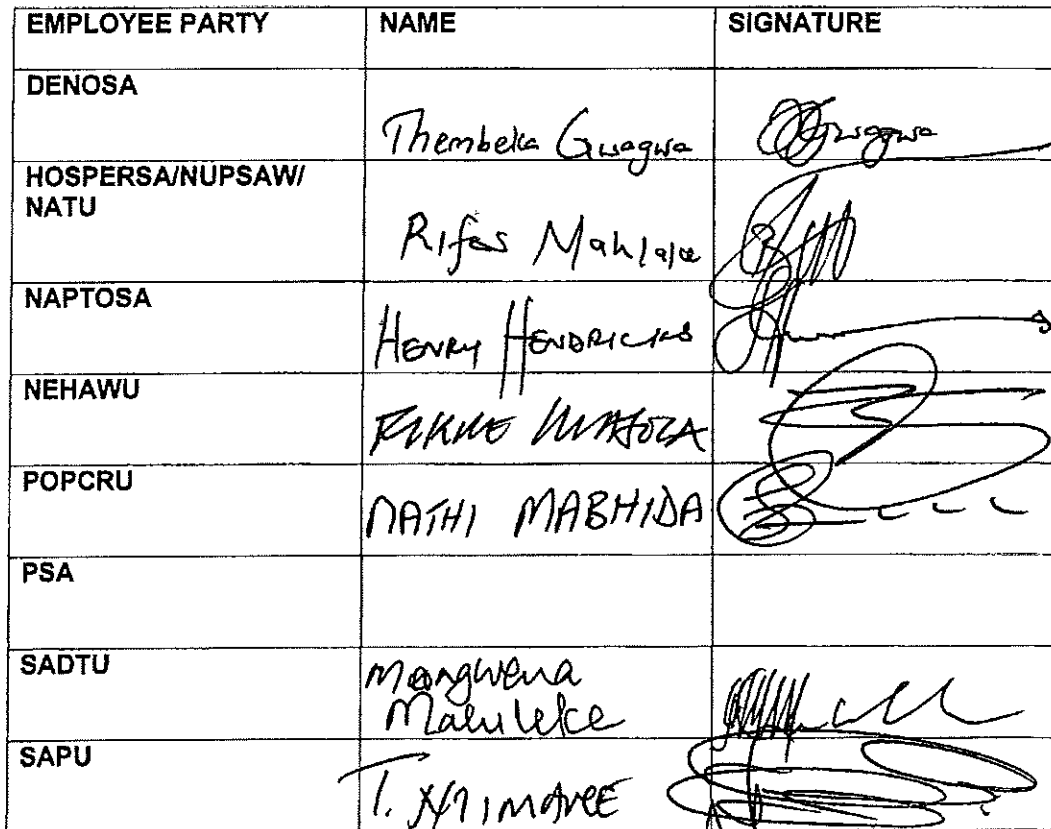 EMPLOYEE PARTY NAME SIGNATURE
DENOSA
Thembeka Gwagwa Gwagwa
HOSPERSA/NUPSAW/
NATU
Rifas Mahlale
NAPTOSA
HENRY HENDRICKS
NEHAWU
POPCRU
NATHI MABHIDA
PSA
SADTU
Mangwena
Maluleke
SAPU
T.